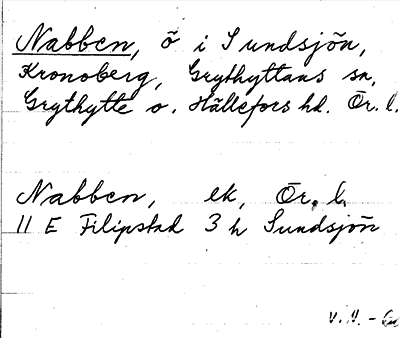 Nabben, ö i Sundsjön,
Kronoberg, Grythyttans sn,
Grythytte o. Hällefors hd. Ör. l.
Nabben, ek, Ör. l.
11 E Filipstad 3 h Sundsjön